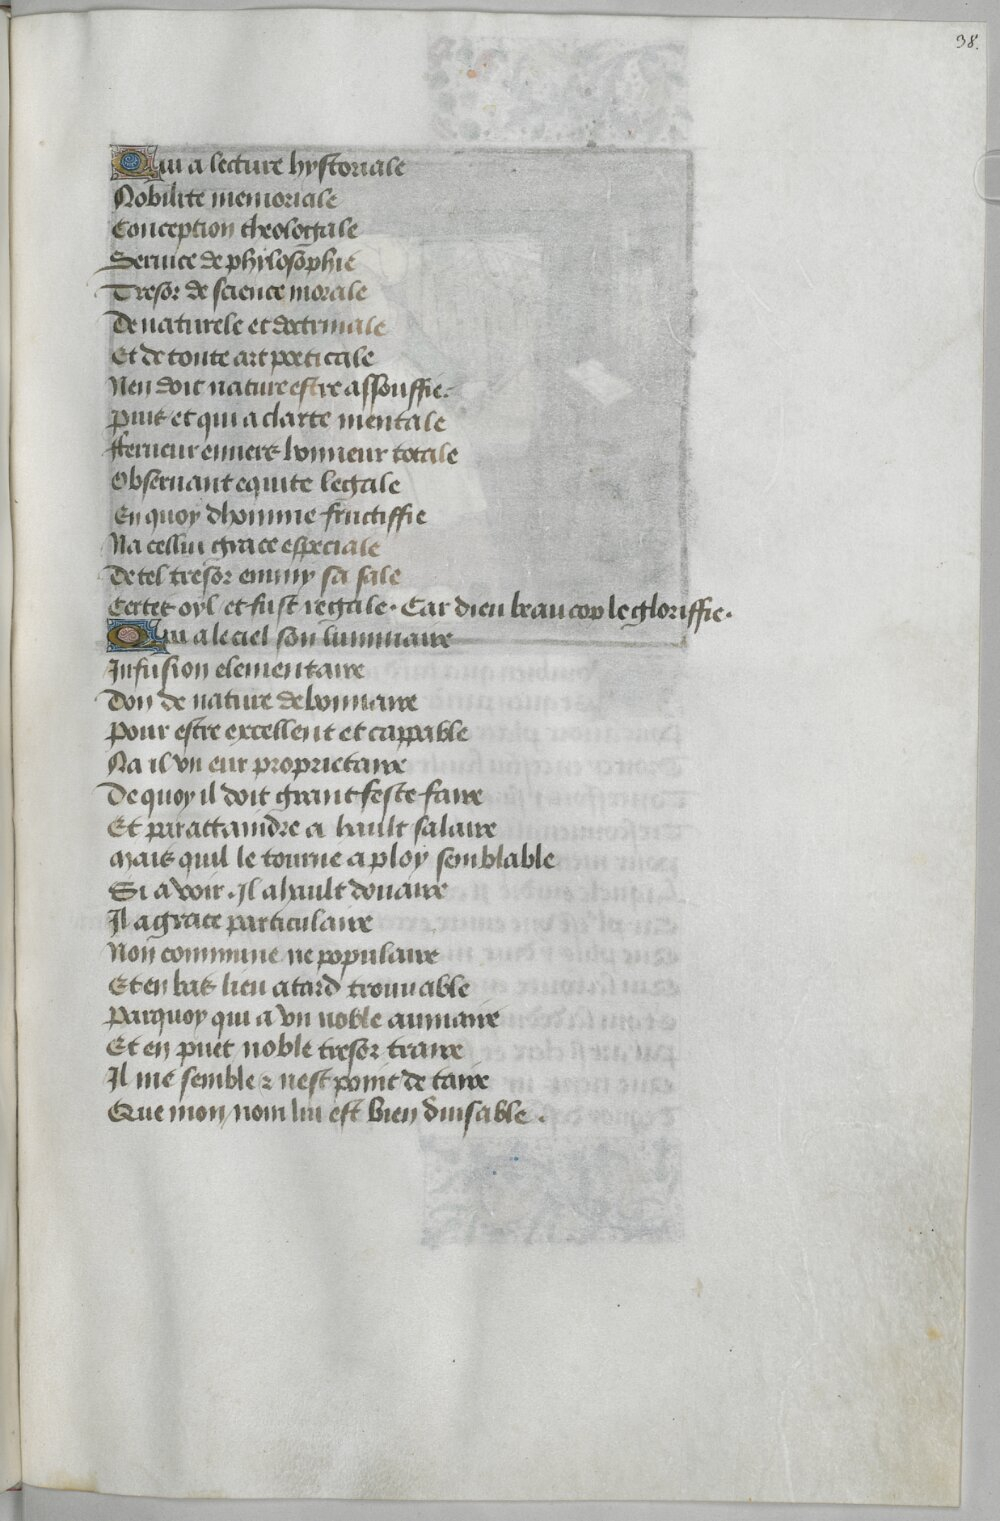 38.
Qui a lecture hystoriale
Nobilite memoriale
Conception theologale
Seruice de phylosophie
Tresor de science morale
De naturele et doctrinale
Et de toute art poeticale
Nen doit nature estre assouffie.
Puis et qui a clarte mentale
fferueur enuers honneur totale
Obseruant equite legale
En quoy dhomme fructiffie
Na cellui grace especiale
De tel tresor emmy sa sale
Certes oyl et fust regale. Car dieu beaucop le gloriffie.
Qui a le ciel son luminaire
Infusion elementaire
Don de nature debonnaire
Pour estre excellent et cappable
Na il vn eur proprietaire
De quoy il doit grant feste faire
Et par attaindre a hault salaire
Mais quil le tourne a ploy semblable
Si a voir. Il a hault douaire
Il a grace particulaire
Non commune ne populaire
Et en bas lieu a tard trouuable
Parquoy qui a vn noble aumaire
Et en puet noble tresor traire
Il me semble z nest point de taire
Que mon nom lui est bien duisable.